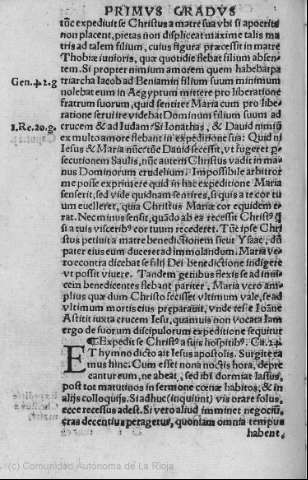 PRIMVS GRADVS
tũc expediuit se Christus a matre sua vbi si apocrifa
non placent, pietas non displiceat maxime talis ma
tris ad talem filium, cuius figura præcessit in matre
Thobiæ iunioris, quæ quotidie flebat filium absen-
tem. Si propter nimium amorem quem habebat pa
Gen.42.g
triarcha Iacob ad Beniamin filium suum minimum
nolebat eum in Aegyptum mittere pro liberatione
fratrum suorum, quid sentiret Maria cum pro libe-
ratione serui tre videbat Dominum filium suum ad
1.Re.20.g.
crucem & ad Iudam? Si Ionathas, & Dauid nimiũ
ex multo amore flebant in expeditione sua: Quid ni
Iesus & Maria nũc tũc Dauid secessit, vt fugeret p
secutionem Saulis, nũc autem Christus vadit in ma
nus Dominorum crudelium. Impossibile arbitror
me posse exprimere quid in hac expeditione Maria
senserit, sed vide quid nam sentires, si quis a te cor tu
um euelleret, quia Christus Mariæ cor equidem e-
rat. Nec minus sensit, quãdo ab ea recessit Christꝰ q̃
si a tuis visceribꝰ cor tuum recederet. Tũc ipse Chri
stus petiuit a matre benedictionem sicut Ysaac, dũ
pater eius eum duceret ad immolandum. Maria ve-
ro contra dicebat se fili Dei benedictione indigere
vt possit viuere. Tandem genibus flexis se ad inui-
cem benedicentes flebant pariter, Maria vero am-
plius quæ dum Christo fecisset vltimum vale, se ad
vltimum mortis eius preparauit, vnde vt se Ioãne
Astitit iuxta crucem Iesu, quamuis non vocata Iam
ergo de suorum discipulorum expeditione sequitur
¶ Expedit se Christꝰ a suis hospitibꝰ. Ca. 24.
ET hymno dicto ait Iesus apostolis. Surgite ea
mus hinc. Cum esset nona noctis hora, depre
cantur eum, ne abeat, sed ibi dormiat lassus,
post tot matutinos in sermone cœnæ habitos, & in
alijs colloquijs. Si adhuc (inquiunt) vis orare solus,
ecce recessus adest. Si vero aliud imminet negociũ,
cras decentius peragetur, quoniam omnia tempus
habent,
(c) Comunidad Autónoma de La Rioja